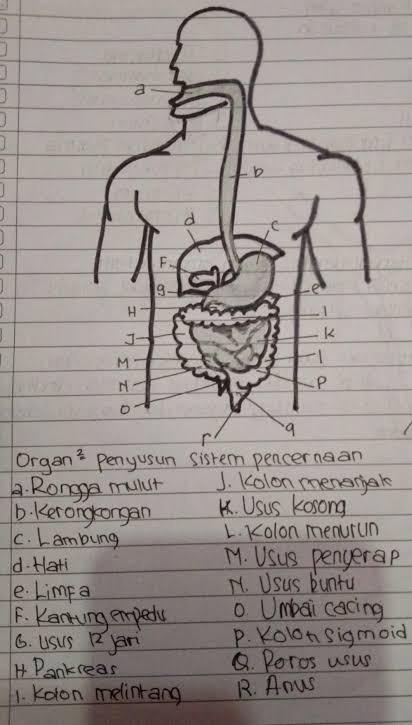 a
b
d
c
F
g
e
H
I
J
K
M
l
N
P
O
r
q
Organ² penyusun sistem pencernaan
a. Rongga mulut
b. Kerongkongan
c. Lambung
d. Hati
e. Limpa
F. Kantung empedu
G. Usus 12 jari
H. Pankreas
I. Kolon melintang
J. Kolon menanjak
K. Usus kosong
L. Kolon menurun
M. Usus penyerap
N. Usus buntu
O. Umbai cacing
P. Kolon sigmoid
Q. Poros usus
R. Anus